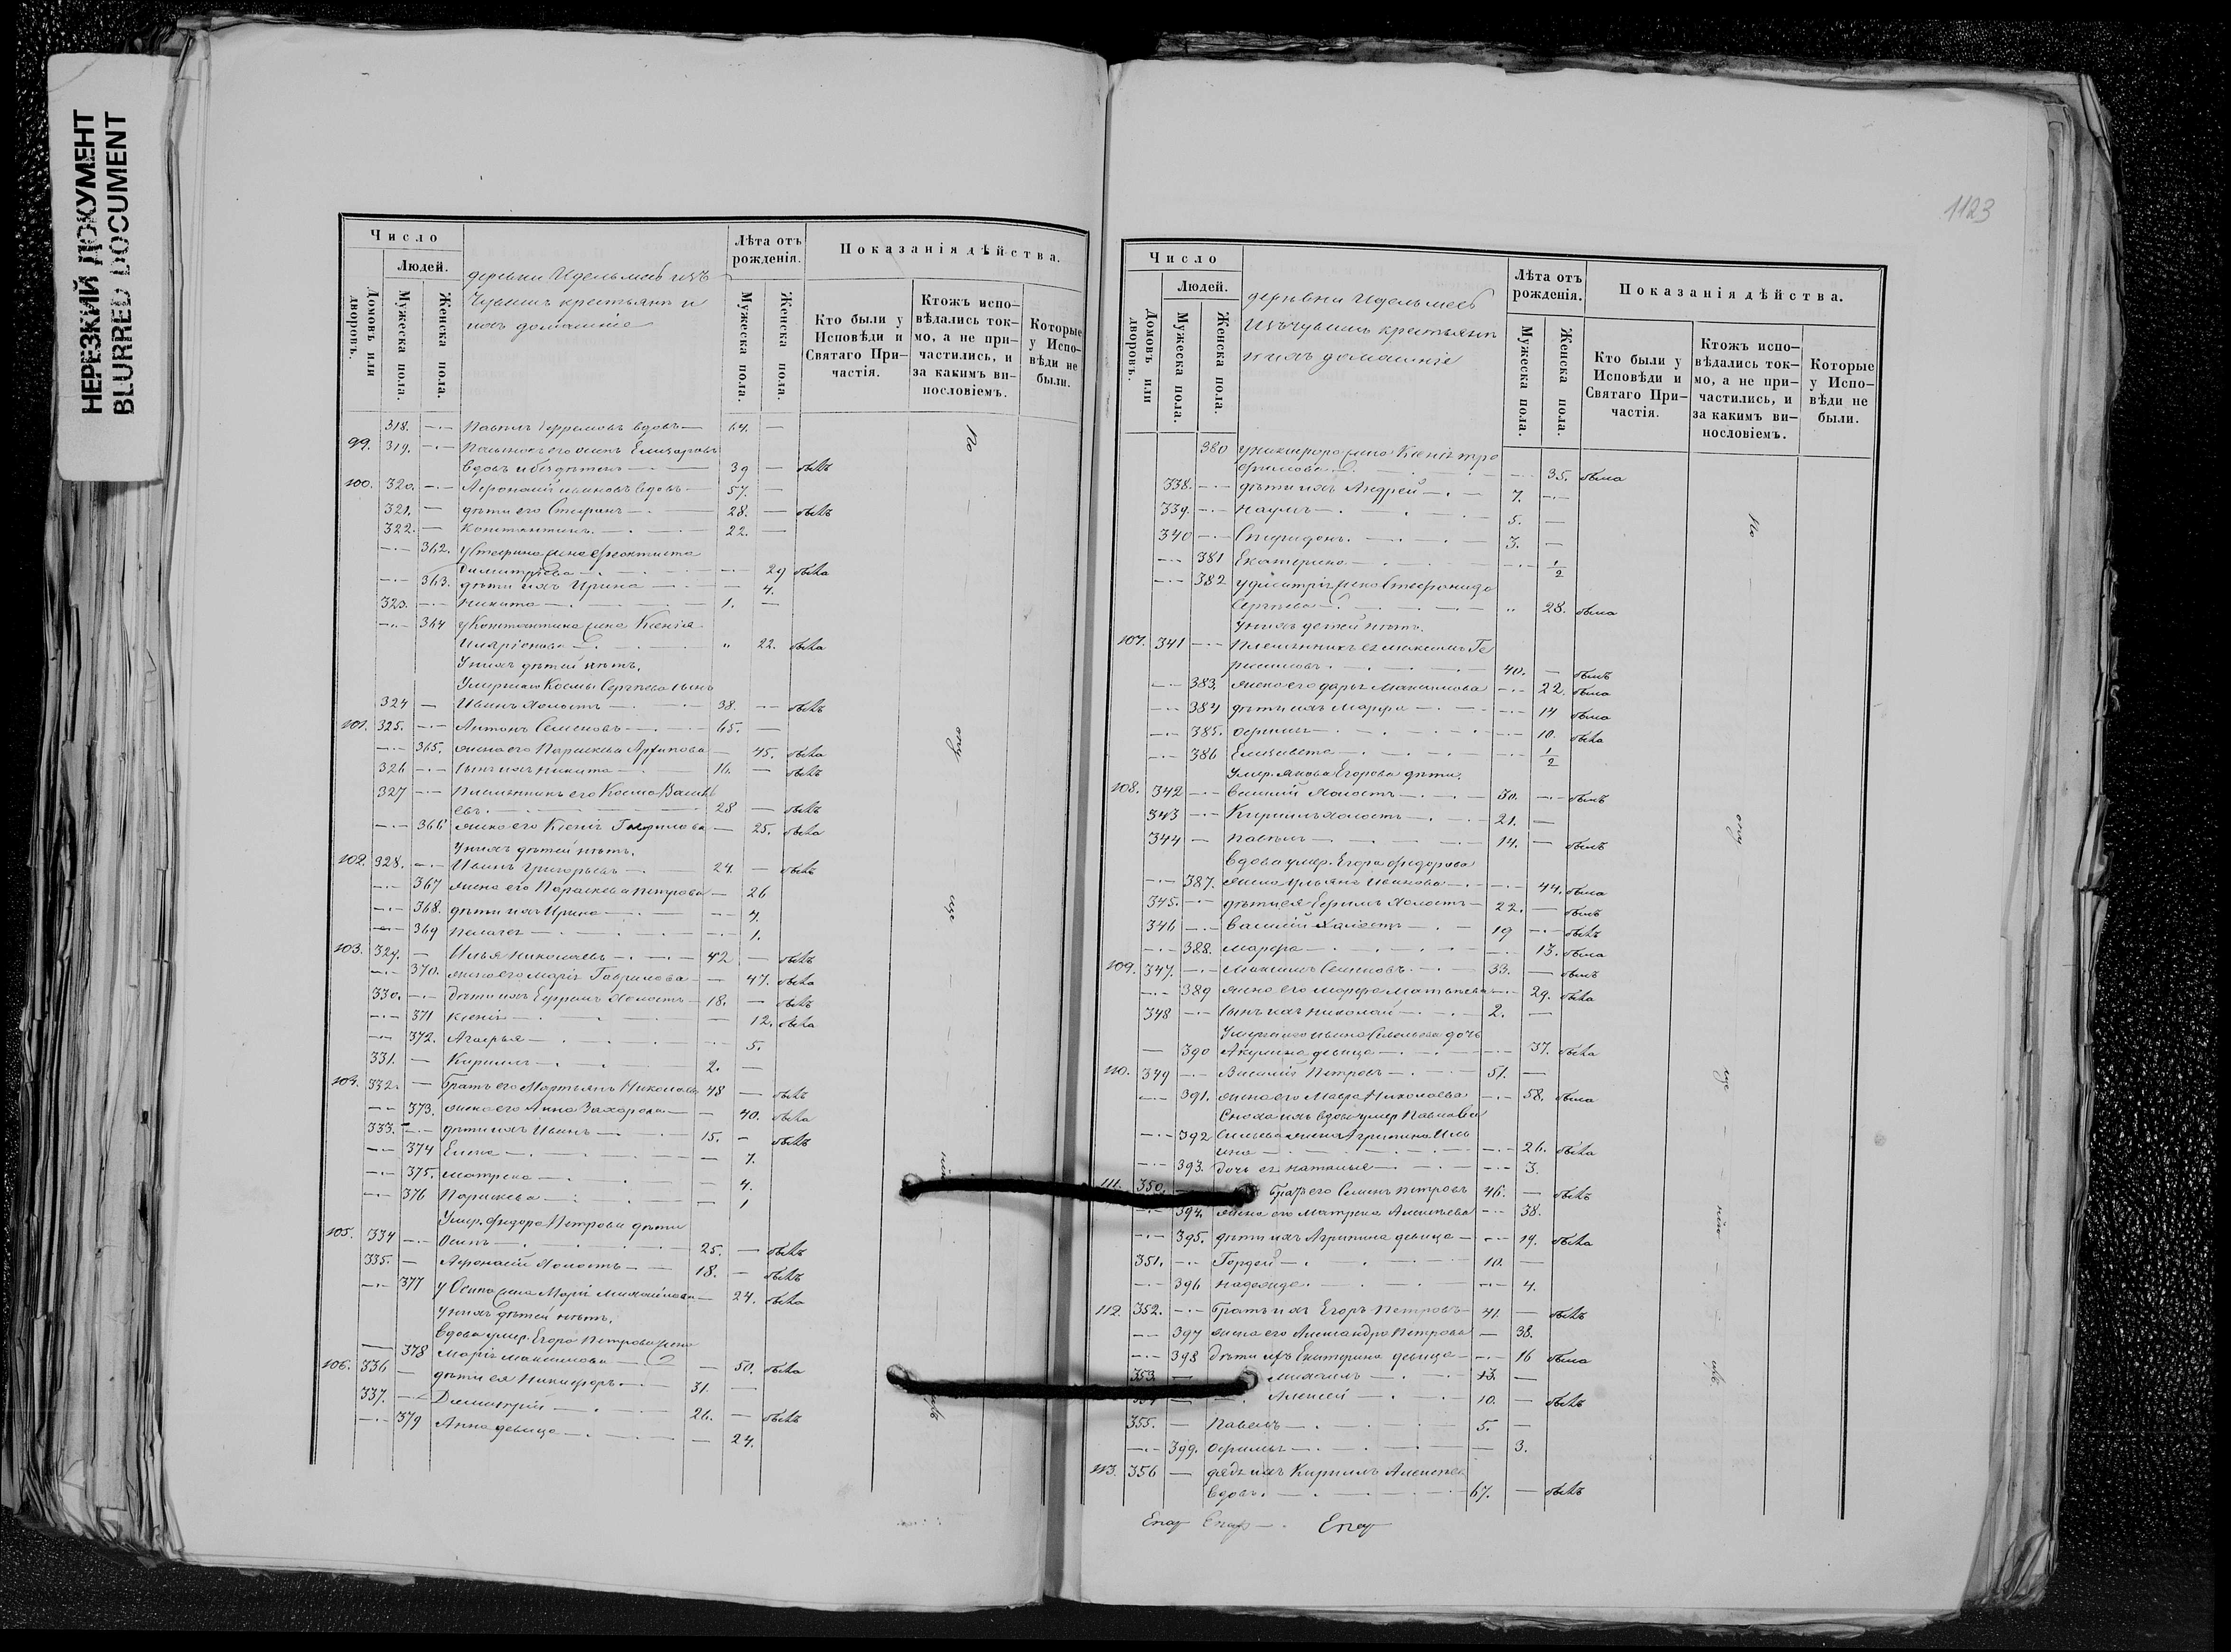 НЕРЕЗКИЙ ДОКУМЕНТ
BLURRED DOCUMENT
Число
Людей.
Домовъ или дворовъ.
Мужеска пола.
Женска пола.
деревни
Чувашъ крестьянъ и
ихъ домашніе
Лѣта отъ рожденія.
Мужеска пола.
Женска пола.
Показанія дѣйства.
Кто были у Исповѣди и Святаго Причастія.
Ктожъ исповѣдались токмо, а не причастились, и за какимъ винословіемъ.
Которые у Исповѣди не были.
318. Ефремовъ вдовъ 64.
99. 319. его Елизаровъ
вдовъ 39 былъ
100. 320. Афонасій Ивановъ вдовъ 57.
321. дѣти его Стефанъ 28. былъ
322. Константинъ 22.
362. у Стефана жена Феоктиста
Димитріева 29 была
363. дѣти ихъ Ирина 4.
323. Никита 1.
364 у Константина жена Ксенія
Иларіонова 22. была
У нихъ дѣтей нѣтъ.
Умершаго Космы Сергѣева сынъ
324 Иванъ холостъ 38. былъ
101. 325. Антонъ Семеновъ 65.
365. жена его Параскева Архипова 45. была
326 сынъ ихъ Никита 16. былъ
327 племянникъ его Косма
евъ. 28 былъ
366 жена его Ксенія 25. была
У нихъ дѣтей нѣтъ.
102. 328. Иванъ Григорьевъ 24. былъ
367 жена его Параскева Петрова 26
368. дѣти ихъ Ирина 4.
369 Пелагея 1.
103. 329. Илья Николаевъ 42 былъ
370. жена его Марія Гаврилова 47. была
330. дѣти ихъ Ефремъ холостъ 18. былъ
371 Ксенія 12. была
372. Агафья 5.
331. Кириллъ 2.
104. 332. братъ его Мартьянъ Николаевъ 48 былъ
373. жена его Анна Захарова 40. была
333. дѣти ихъ Иванъ 15. былъ
374 Елена 7.
375. Матрена 4.
376 Параскева 1
Умер. Федора Петрова дѣти
105. 334 Осипъ 25. былъ
335. Афонасій холостъ 18. былъ
377 у Осипа жена Марія Михайлова 24. была
У нихъ дѣтей нѣтъ.
Вдова умер. Егора Петрова жена
378 Марія Максимова 50. была
106. 336 дѣти ея Никифоръ 31.
337. Димитрій 26. былъ
379 Анна девица 24.
По
1123
Число
Людей.
Домовъ или дворовъ.
Мужеска пола.
Женска пола.
деревни
Изъ чувашъ крестьянъ
и ихъ домашніе
Лѣта отъ рожденія.
Мужеска пола.
Женска пола.
Показанія дѣйства.
Кто были у Исповѣди и Святаго Причастія.
Ктожъ исповѣдались токмо, а не причастились, и за какимъ винословіемъ.
Которые у Исповѣди не были.
380 у Никифора жена Ксенія Тро
фимова 35. была
338. дѣти ихъ Андрей 7.
339. Наумъ 5.
340 Спиридонъ 3.
381 Екатерина 1/2
382 у Дмитрія жена Стефанида
Сергѣева 28. была
У нихъ детей нѣтъ.
107. 341 Племянникъ ея Максимъ Ге
расимовъ 40. былъ
383. жена его Дарья Максимова 22. была
384 дѣти ихъ Марфа 14 была
385. Офимья 10. была
386 Елизавета 1/2
Умер. Якова Егорова дѣти.
108. 342 Василій холостъ 30. былъ
343 Кириллъ холостъ 21.
344 Павелъ 14. былъ
Вдова умер. Егора Федорова
387. жена Ульяна Иванова 44. была
345. дѣти ея Ефимъ холостъ 22. былъ
346 Василій холостъ 19 былъ
388. Марфа 13. была
109. 347. Максимъ Семеновъ 33. былъ
389 жена его Марфа Матвѣева 29. была
348 сынъ ихъ Николай 2.
Умершаго Ивана Савельева дочь
390 Акулина девица 37. была
110. 349 Василій Петровъ 51.
391. жена его Мавра Николаева 58. была
Сноха ихъ вдова умер Павла Ва
392 сильева жена Агрипина Иль
ина 26. была
393. дочь ея Наталья 3.
111. 350. братъ его Семенъ Петровъ 46. былъ
394. жена его Матрена Алексѣева 38.
395. дѣти ихъ Агрипина девица 19. была
351. Гордей 10.
396 Надежда 4.
112. 352. братъ ихъ Егоръ Петровъ 41. былъ
397 жена его Александра Петрова 38.
398 дѣти ихъ Екатерина девица 16 была
353. Михаилъ 13.
Алексей 10. былъ
355. Павелъ 5.
399. Офимья 3.
113. 356 дядя ихъ Кириллъ Алексѣевъ
вдовъ. 67. былъ
По